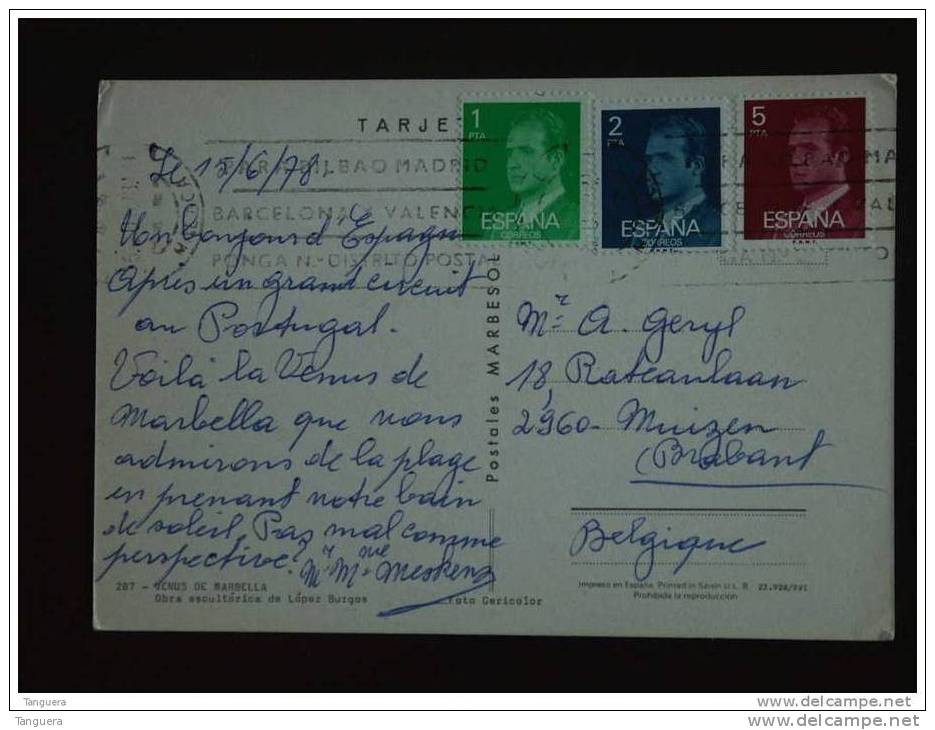 TARJE
1 PTA
ESPAÑA
CORREOS
2 PTA
ESPAÑA
CORREOS
5 PTA
ESPAÑA
CORREOS
BILBAO MADRID
BARCELONA Y VALENCIA
PONGA N.- DISTRITO POSTAL
Le 15/6/78
Un bonjour d'Espagne
Après un grand circuit
au Portugal.
Voilà la Vénus de
Marbella que nous
admirons de la plage
en prenant notre bain
de soleil. Pas mal comme
perspective!
Mr Mme Meskens
Postales MARBESOL
Mr A. Geryl
18, Rateaulaan
2960 - Muizen
(Brabant
Belgique
287 - VENUS DE MARBELLA
Obra escultórica de López Burgos
Foto Gericolor
Impreso en España. Printed in Spain
Prohibida la reproducción
Tanguera
Tanguera
www.delcampe.net
www.delcampe.net